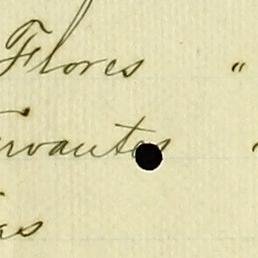 Flores "
ervantes "
as